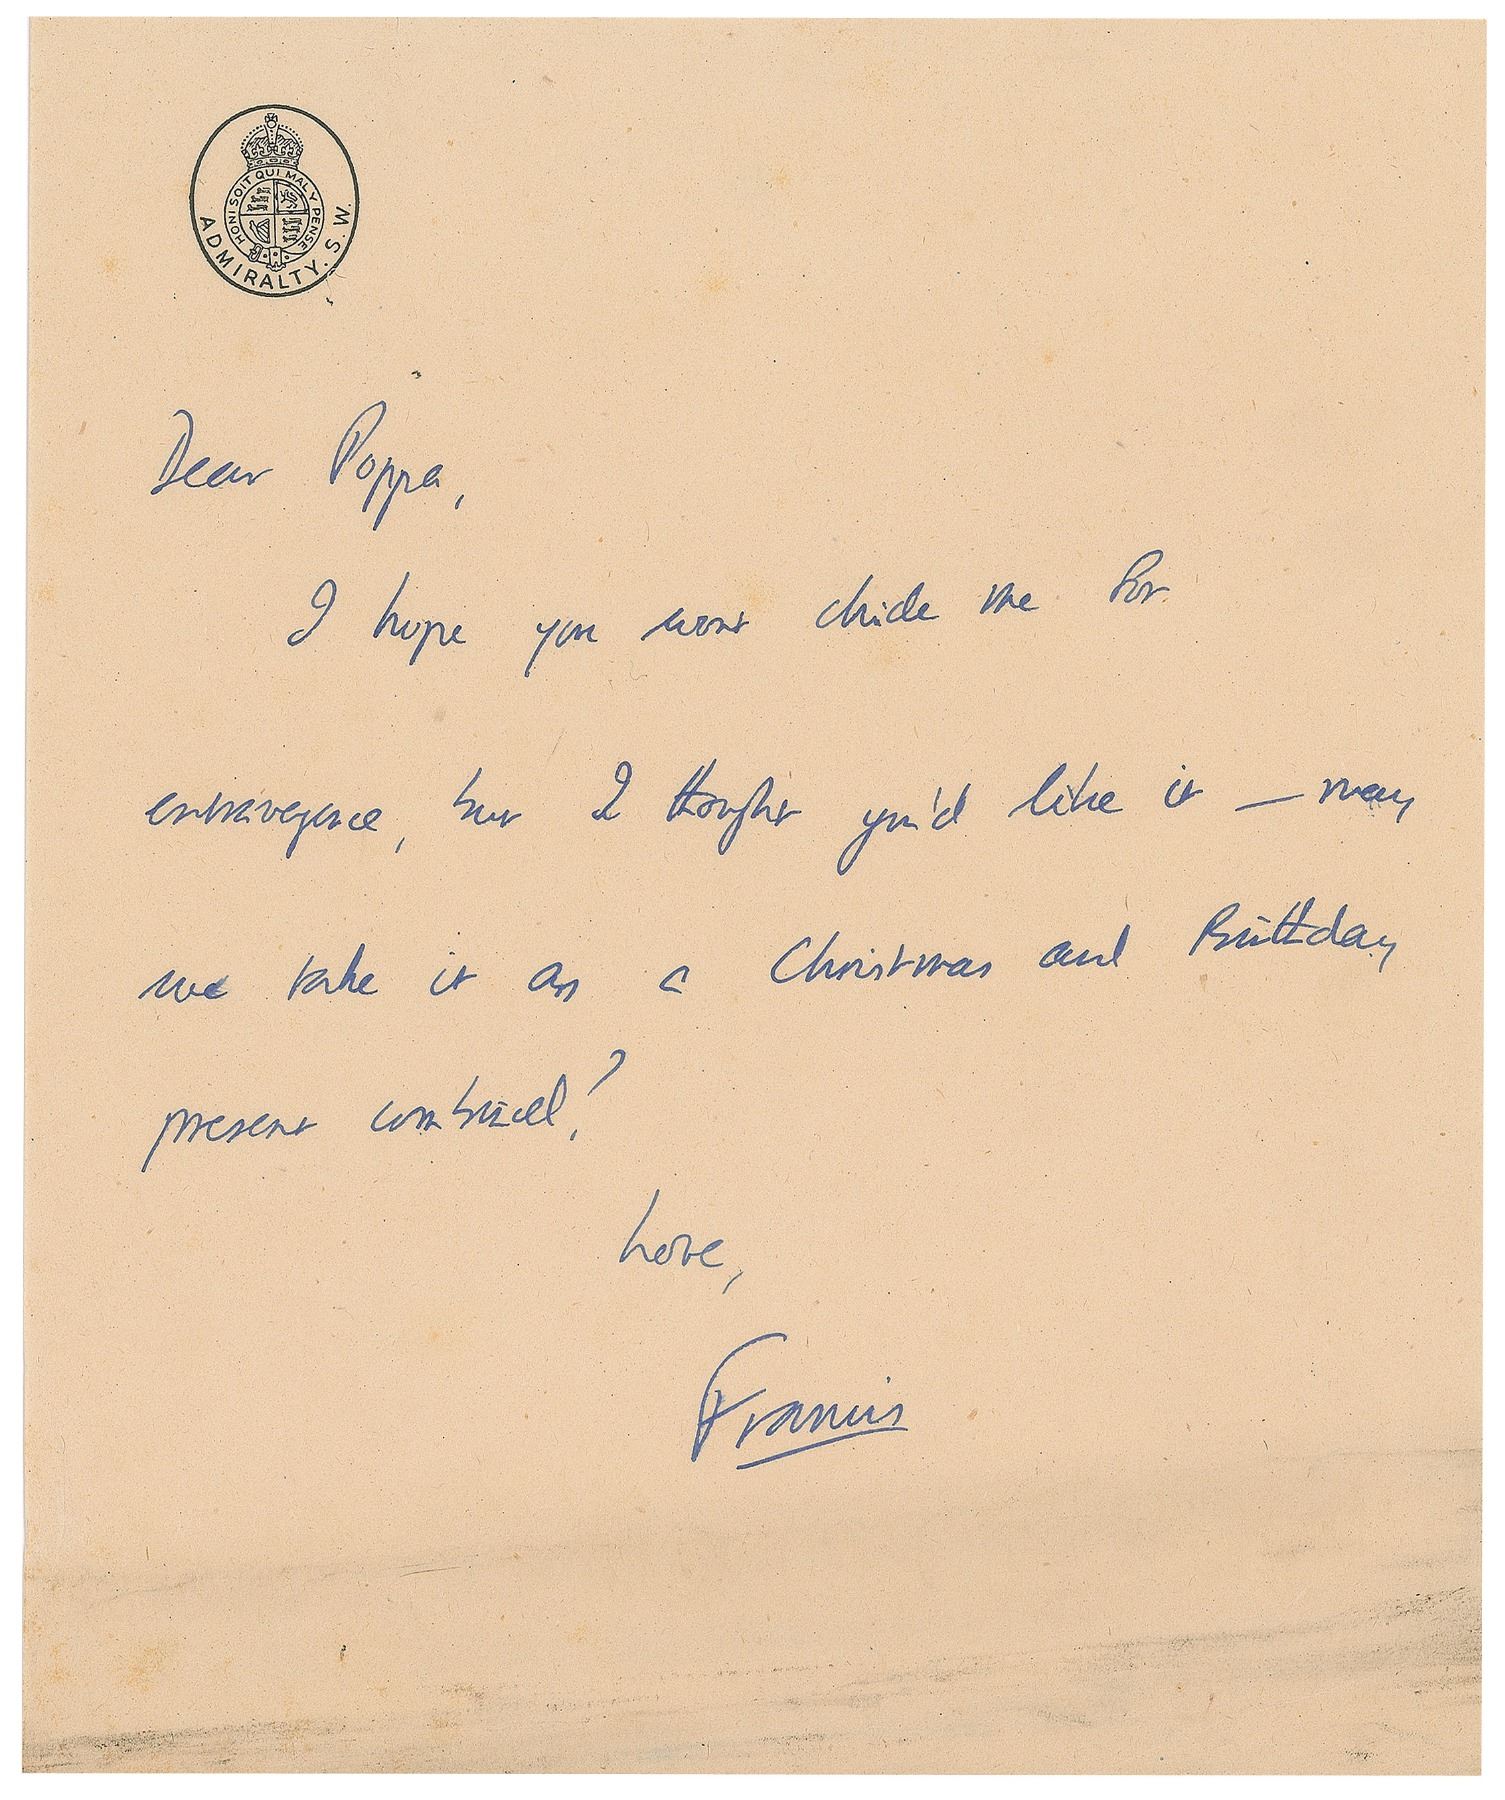 HONI SOIT QUI MAL Y PENSE
ADMIRALTY. S. W.
Dear Poppa,
I hope you wont chide me for
extravegence, but I thought you'd like it — may
we take it as a Christmas and Birthday
present combined?
Love,
Francis